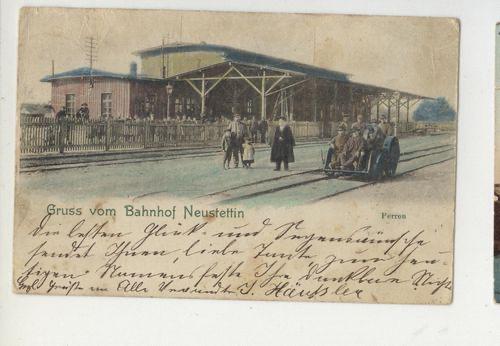 Gruss vom Bahnhof Neustettin
Perron
Die besten Glück und Segenswünsche
sendet Ihnen, liebe Tante zum heu-
tigen Namensfeste Ihre dankbare Nichte
Grüße an Alle Verwandte J. Häussler